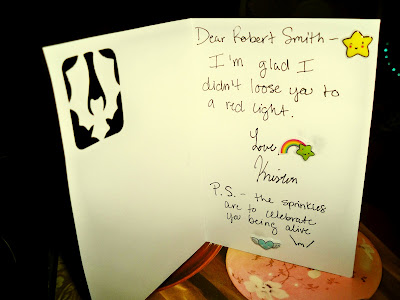 Dear Robert Smith –
I'm glad I
didn't loose you to
a red light.
Love,
Kristen
P.S. – the sprinkles
are to celebrate
you being alive
\m/